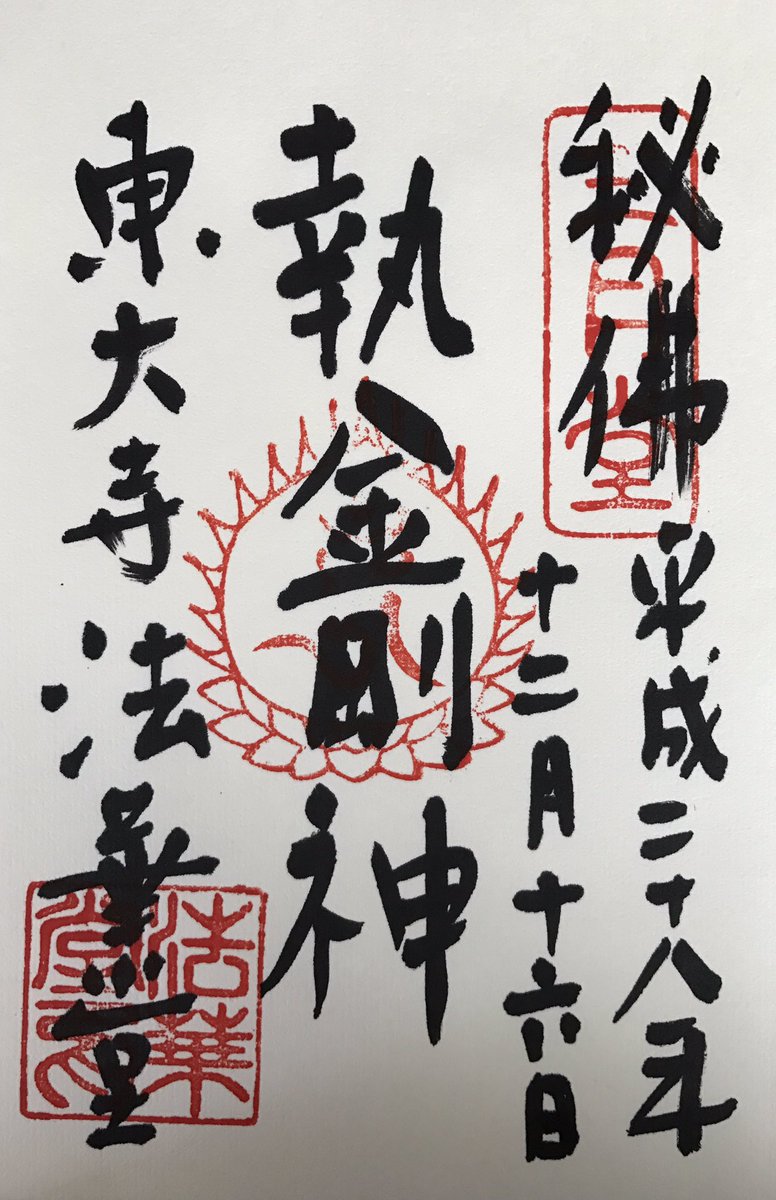 秘佛
平成二十八年
十二月十六日
執金剛神
東大寺法華堂
三月堂
法華堂印